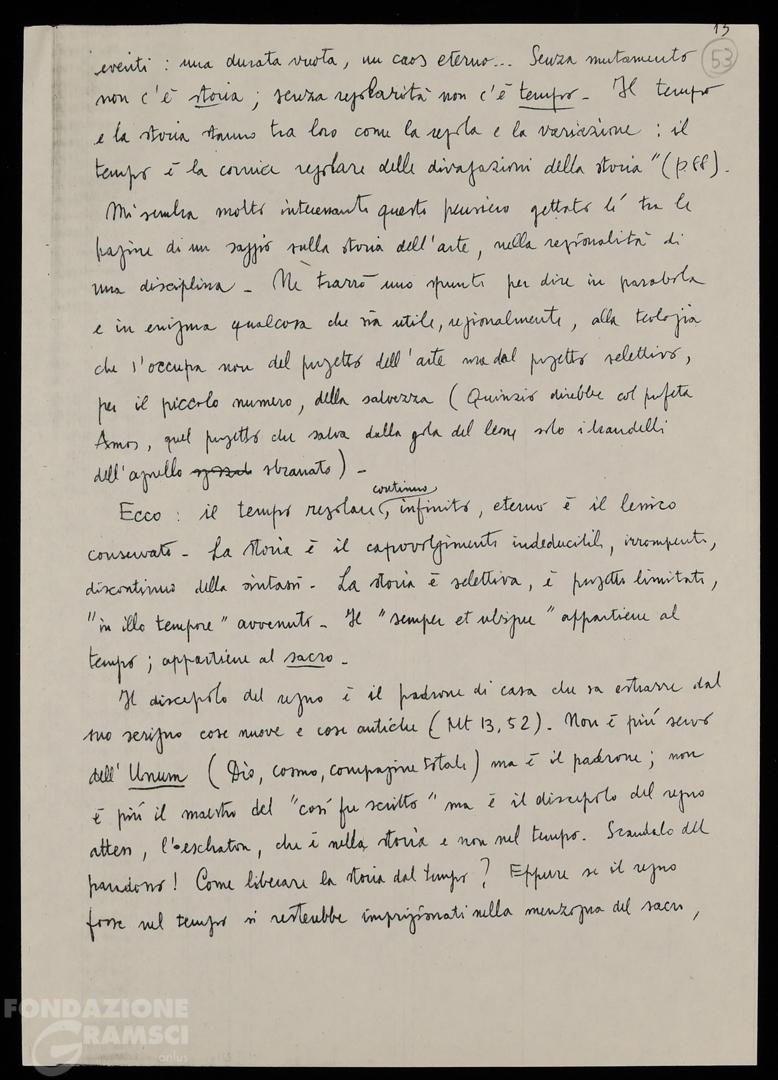 15
53
eventi : una durata vuota, un caos eterno... Senza mutamento
non c'è storia ; senza regolarità non c'è tempo - Il tempo
e la storia stanno tra loro come la regola e la variazione : il
tempo è la cornice regolare delle divagazioni della storia" (p 88).
Mi sembra molto interessante questo pensiero gettato lí tra le
pagine di un saggio sulla storia dell'arte, nella regionalità di
una disciplina - Ne trarrò uno spunto per dire in parabola
e in enigma qualcosa che sia utile, regionalmente, alla teologia
che s'occupa non del progetto dell'arte ma dal progetto selettivo,
per il piccolo numero, della salvezza ( Quinzio direbbe col profeta
Amos, quel progetto che salva dalla gola del leone solo i brandelli
dell'agnello sbranato ) -
continuo
Ecco : il tempo regolare, infinito, eterno è il lessico
conservato - La storia è il capovolgimento indeducibile, irrompente,
discontinuo della sintassi - La storia è selettiva, è progetto limitato,
"in illo tempore" avvenuto - Il "semper et ubique" appartiene al
tempo ; appartiene al sacro -
Il discepolo del regno è il padrone di casa che sa estrarre dal
suo scrigno cose nuove e cose antiche ( Mt 13, 52 ). Non è piú servo
dell' Unum ( Dio, cosmo, compagine totale ) ma è il padrone ; non
è piú il maestro del "cosí fu scritto" ma è il discepolo del regno
atteso, l'eschaton, che è nella storia e non nel tempo. Scandalo del
paradosso ! Come liberare la storia dal tempo ? Eppure se il regno
fosse nel tempo si resterebbe imprigionati nella menzogna del sacro,
FONDAZIONE
GRAMSCI
onlus